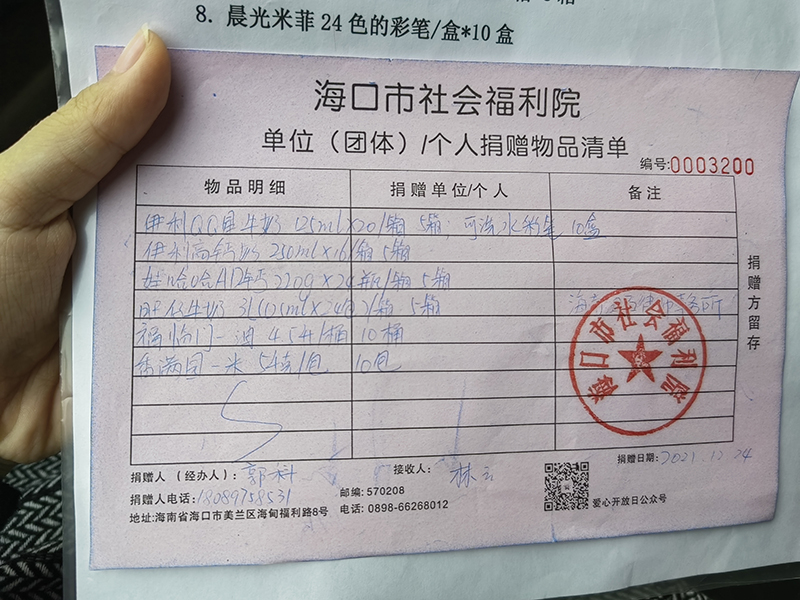 8. 晨光米菲24色的彩笔/盒*10盒
海口市社会福利院
单位（团体）/个人捐赠物品清单
编号:0003200
物品明细 捐赠单位/个人 备注
伊利QQ星牛奶 125ml×20/箱 5箱; 可洗水彩笔 10盒
伊利高钙奶 250ml×16/箱 5箱
娃哈哈AD钙 220g×24瓶/箱 5箱
福临门一油 4.54/桶 10桶
香满园一米 5千克/包 10包
捐赠方留存
海口市社会福利院
捐赠人（经办人）: 郭科
接收人:
捐赠日期: 2021.12.24
捐赠人电话: 18089758531
邮编: 570208
地址:海南省海口市美兰区海甸福利路8号
电话: 0898-66268012
爱心开放日公众号